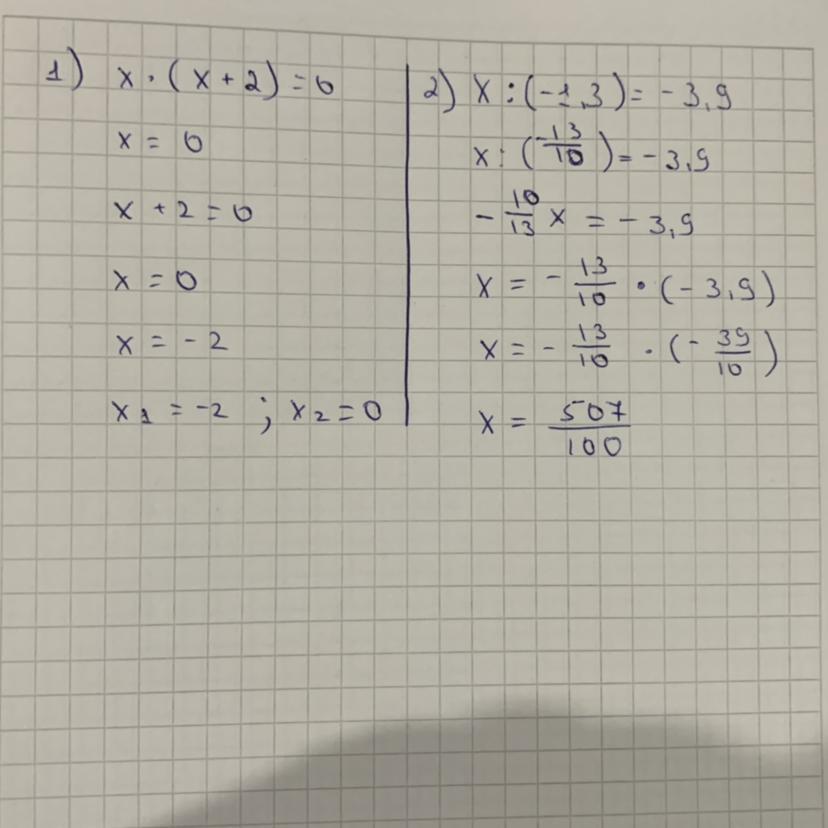 1) x · (x + 2) = 0
x = 0
x + 2 = 0
x = 0
x = - 2
x₁ = -2 ; x₂ = 0
2) x : (-1,3) = - 3,9
x : (-13/10) = - 3,9
- 10/13 x = - 3,9
x = - 13/10 · (- 3,9)
x = - 13/10 · (- 39/10)
x = 507/100